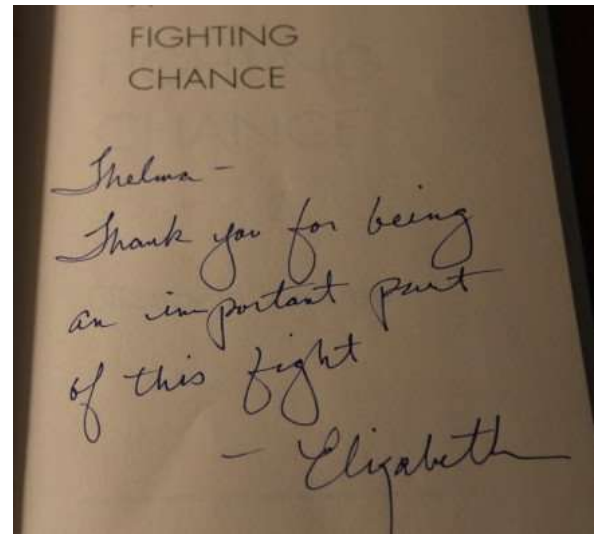 FIGHTING
CHANCE
Thelma -
Thank you for being
an important part
of this fight
- Elizabeth